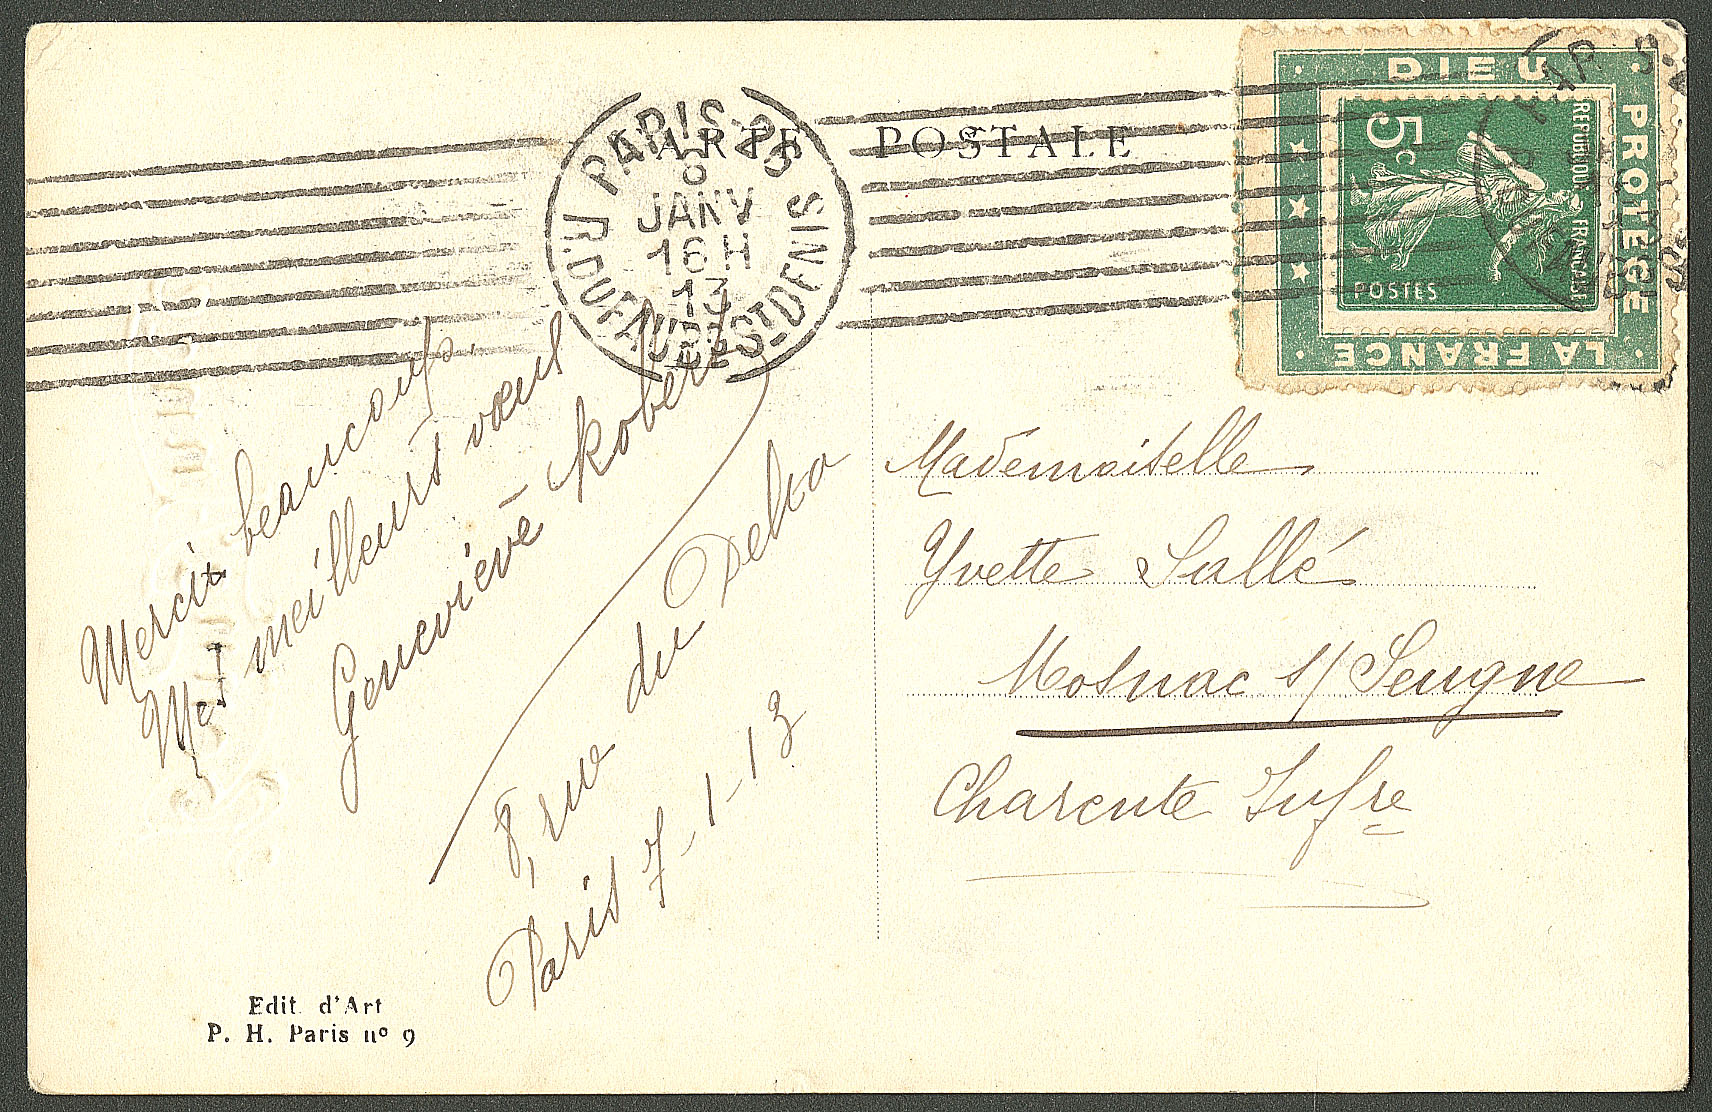 CARTE POSTALE
PARIS-25
8
JANV
16H
13
R. DU FAUB. ST DENIS
DIEU
PROTÈGE
LA FRANCE
5c
REPUBLIQUE FRANÇAISE
POSTES
Merci beaucoup.
Mes meilleurs vœux
Geneviève Robert
8, rue du Delta
Paris 7-1-13
Mademoiselle
Yvette Sallé
Mosnac s/ Seugne
Charente Infre
Edit. d'Art
P. H. Paris nº 9